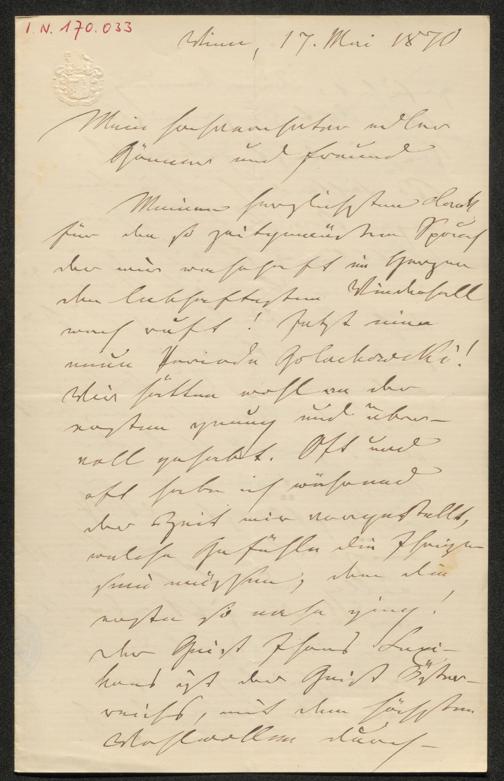 I. N. 170.033
Wien, 17. Mai 1870
Mein hochverehrter edler
Gönner und Freund
Meinen herzlichsten Dank
für den so zeitgemäßen Spruch
der mir wahrhaft im Herzen
den lebhaftesten Wiederhall
wach ruft! Jetzt eine
neue Periode Goluchowski!
Wir hätten wohl an der
ersten genug und über-
voll gehabt. Oft und
oft habe ich während
der Zeit mir vorgestellt,
welche Gefühle die Ihrigen
sein müssen, dem die
erste so nahe ging!
der Geist Ihres
ist der Geist Öster-
reichs, mit dem höchsten
Wohlwollen durch-